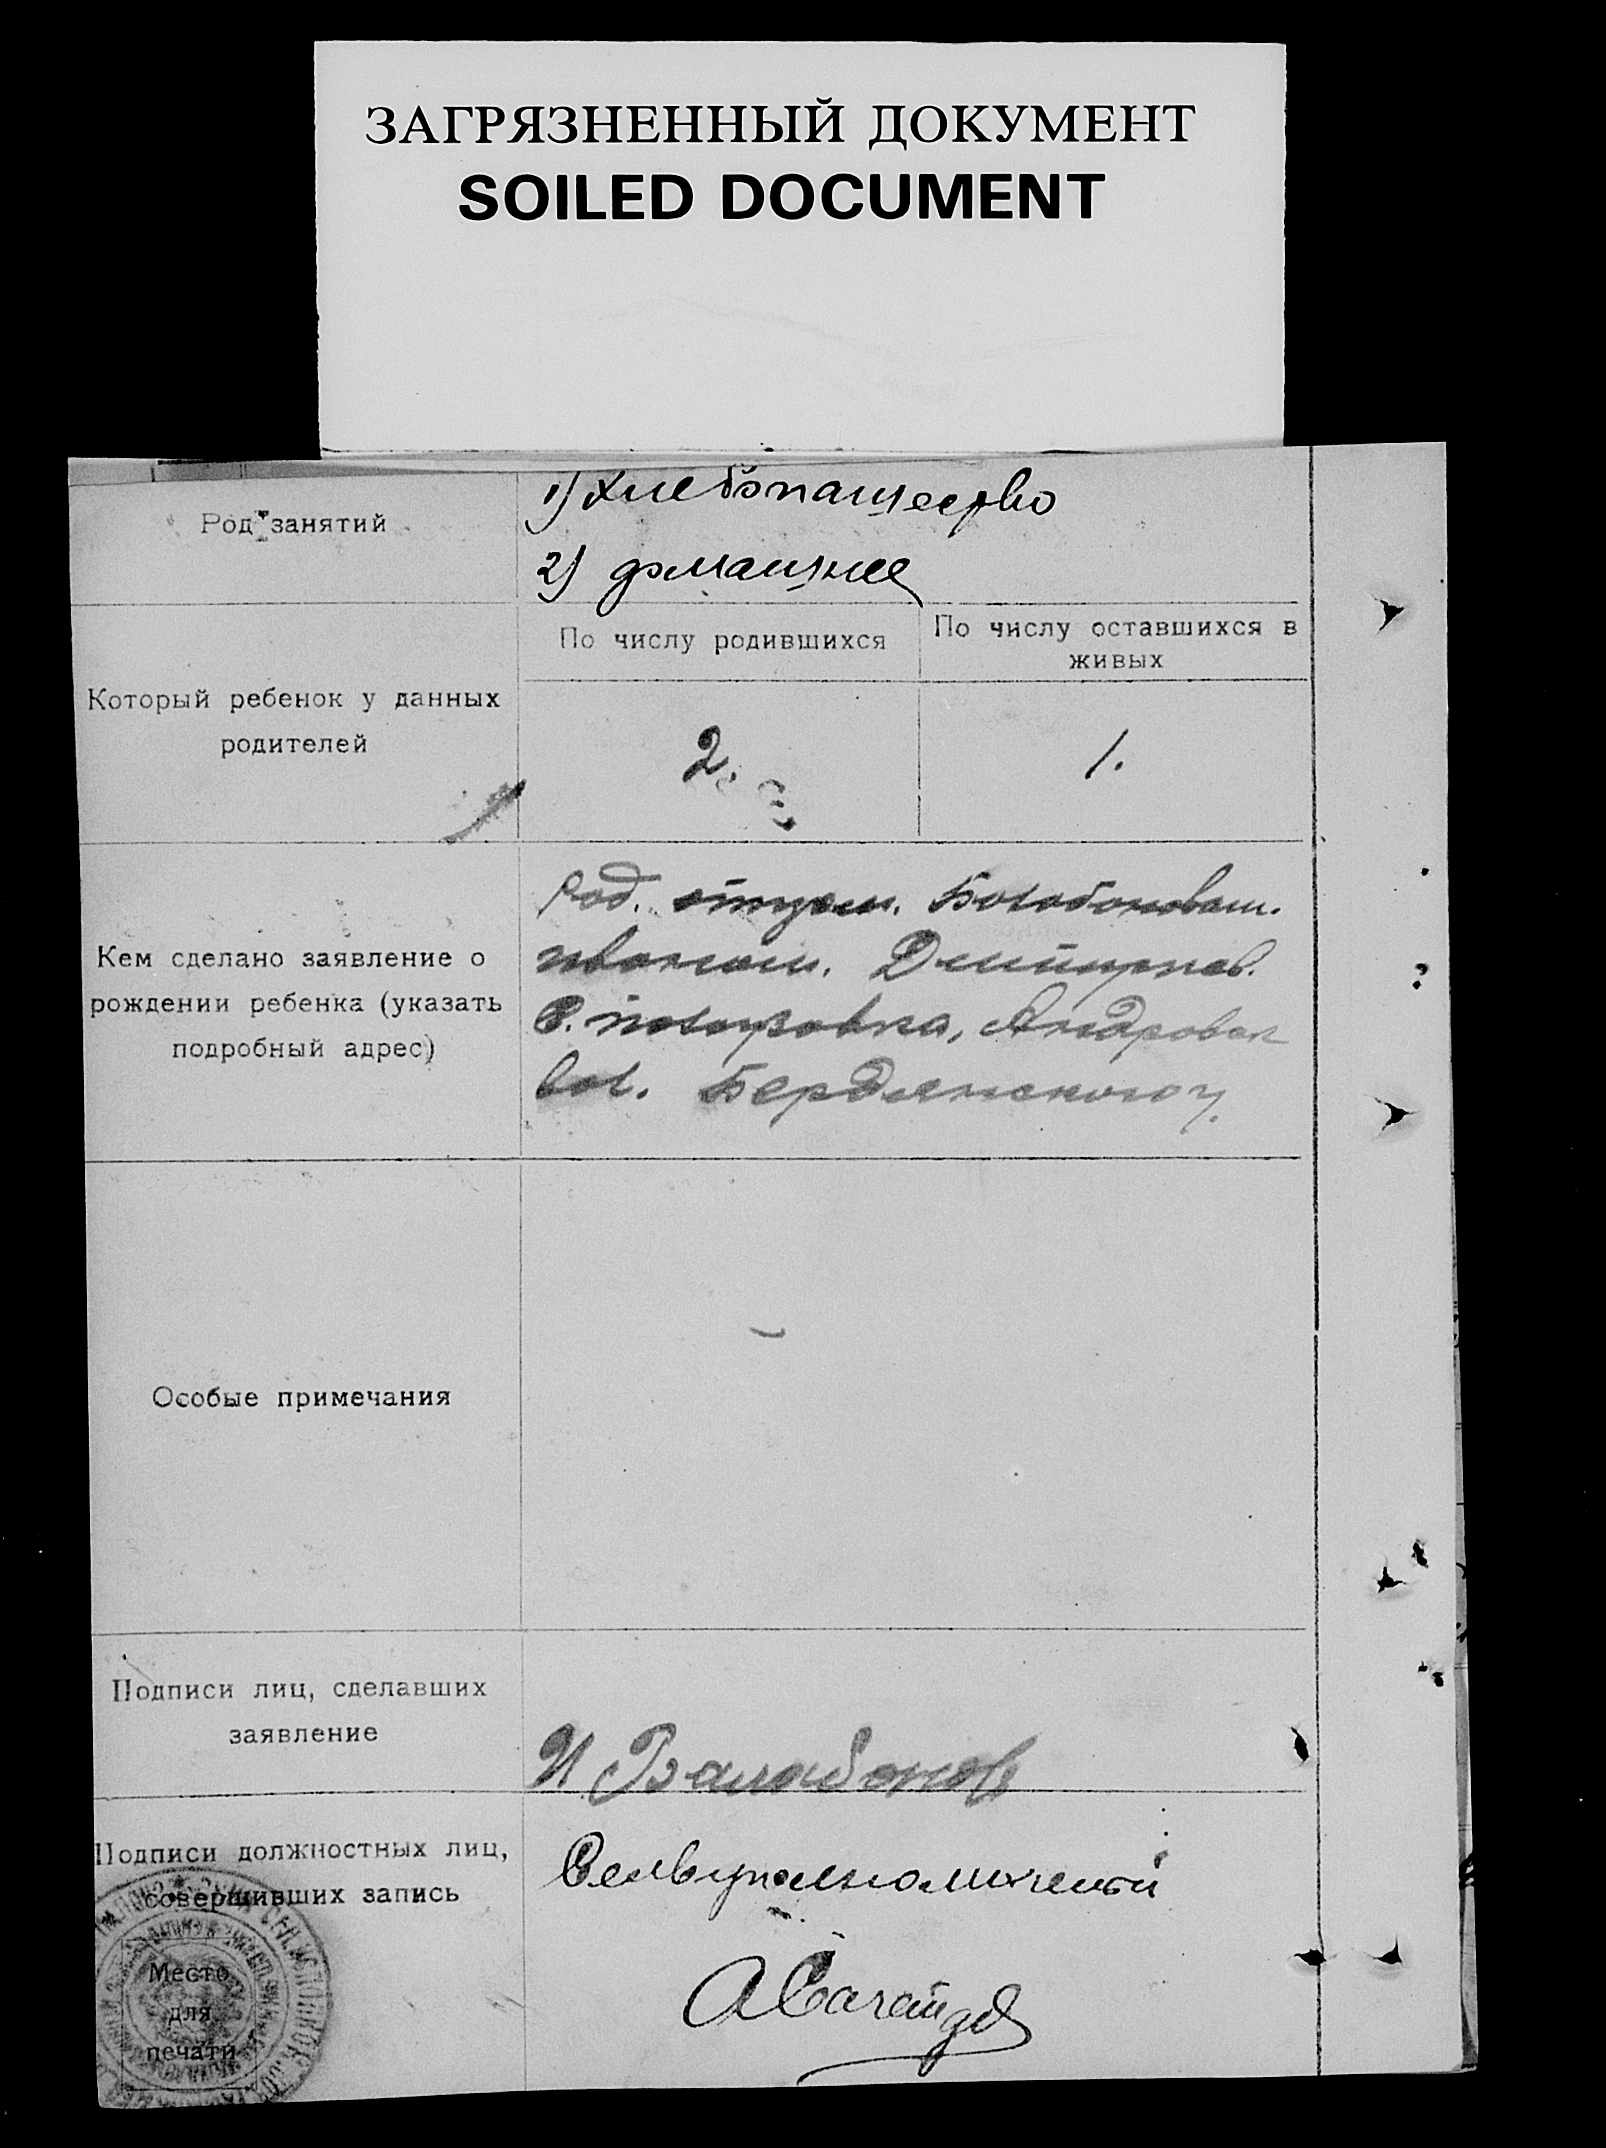 ЗАГРЯЗНЕННЫЙ ДОКУМЕНТ
SOILED DOCUMENT
Род занятий
1) хлебопашество
2) домашнее
Который ребенок у данных
родителей
По числу родившихся
По числу оставшихся в
живых
2.
1.
Кем сделано заявление о
рождении ребенка (указать
подробный адрес)
Род. отцом.
Дмитриев.
С. Андровск
вол. Бердянского у.
Особые примечания
Подписи лиц, сделавших
заявление
И Балабонов
Подписи должностных лиц,
совершивших запись
Место
для
печати